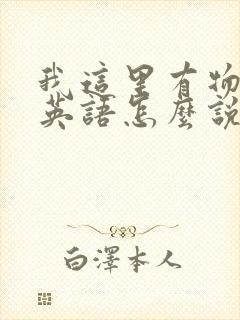 我這里有物
英語怎麼說
白澤本人